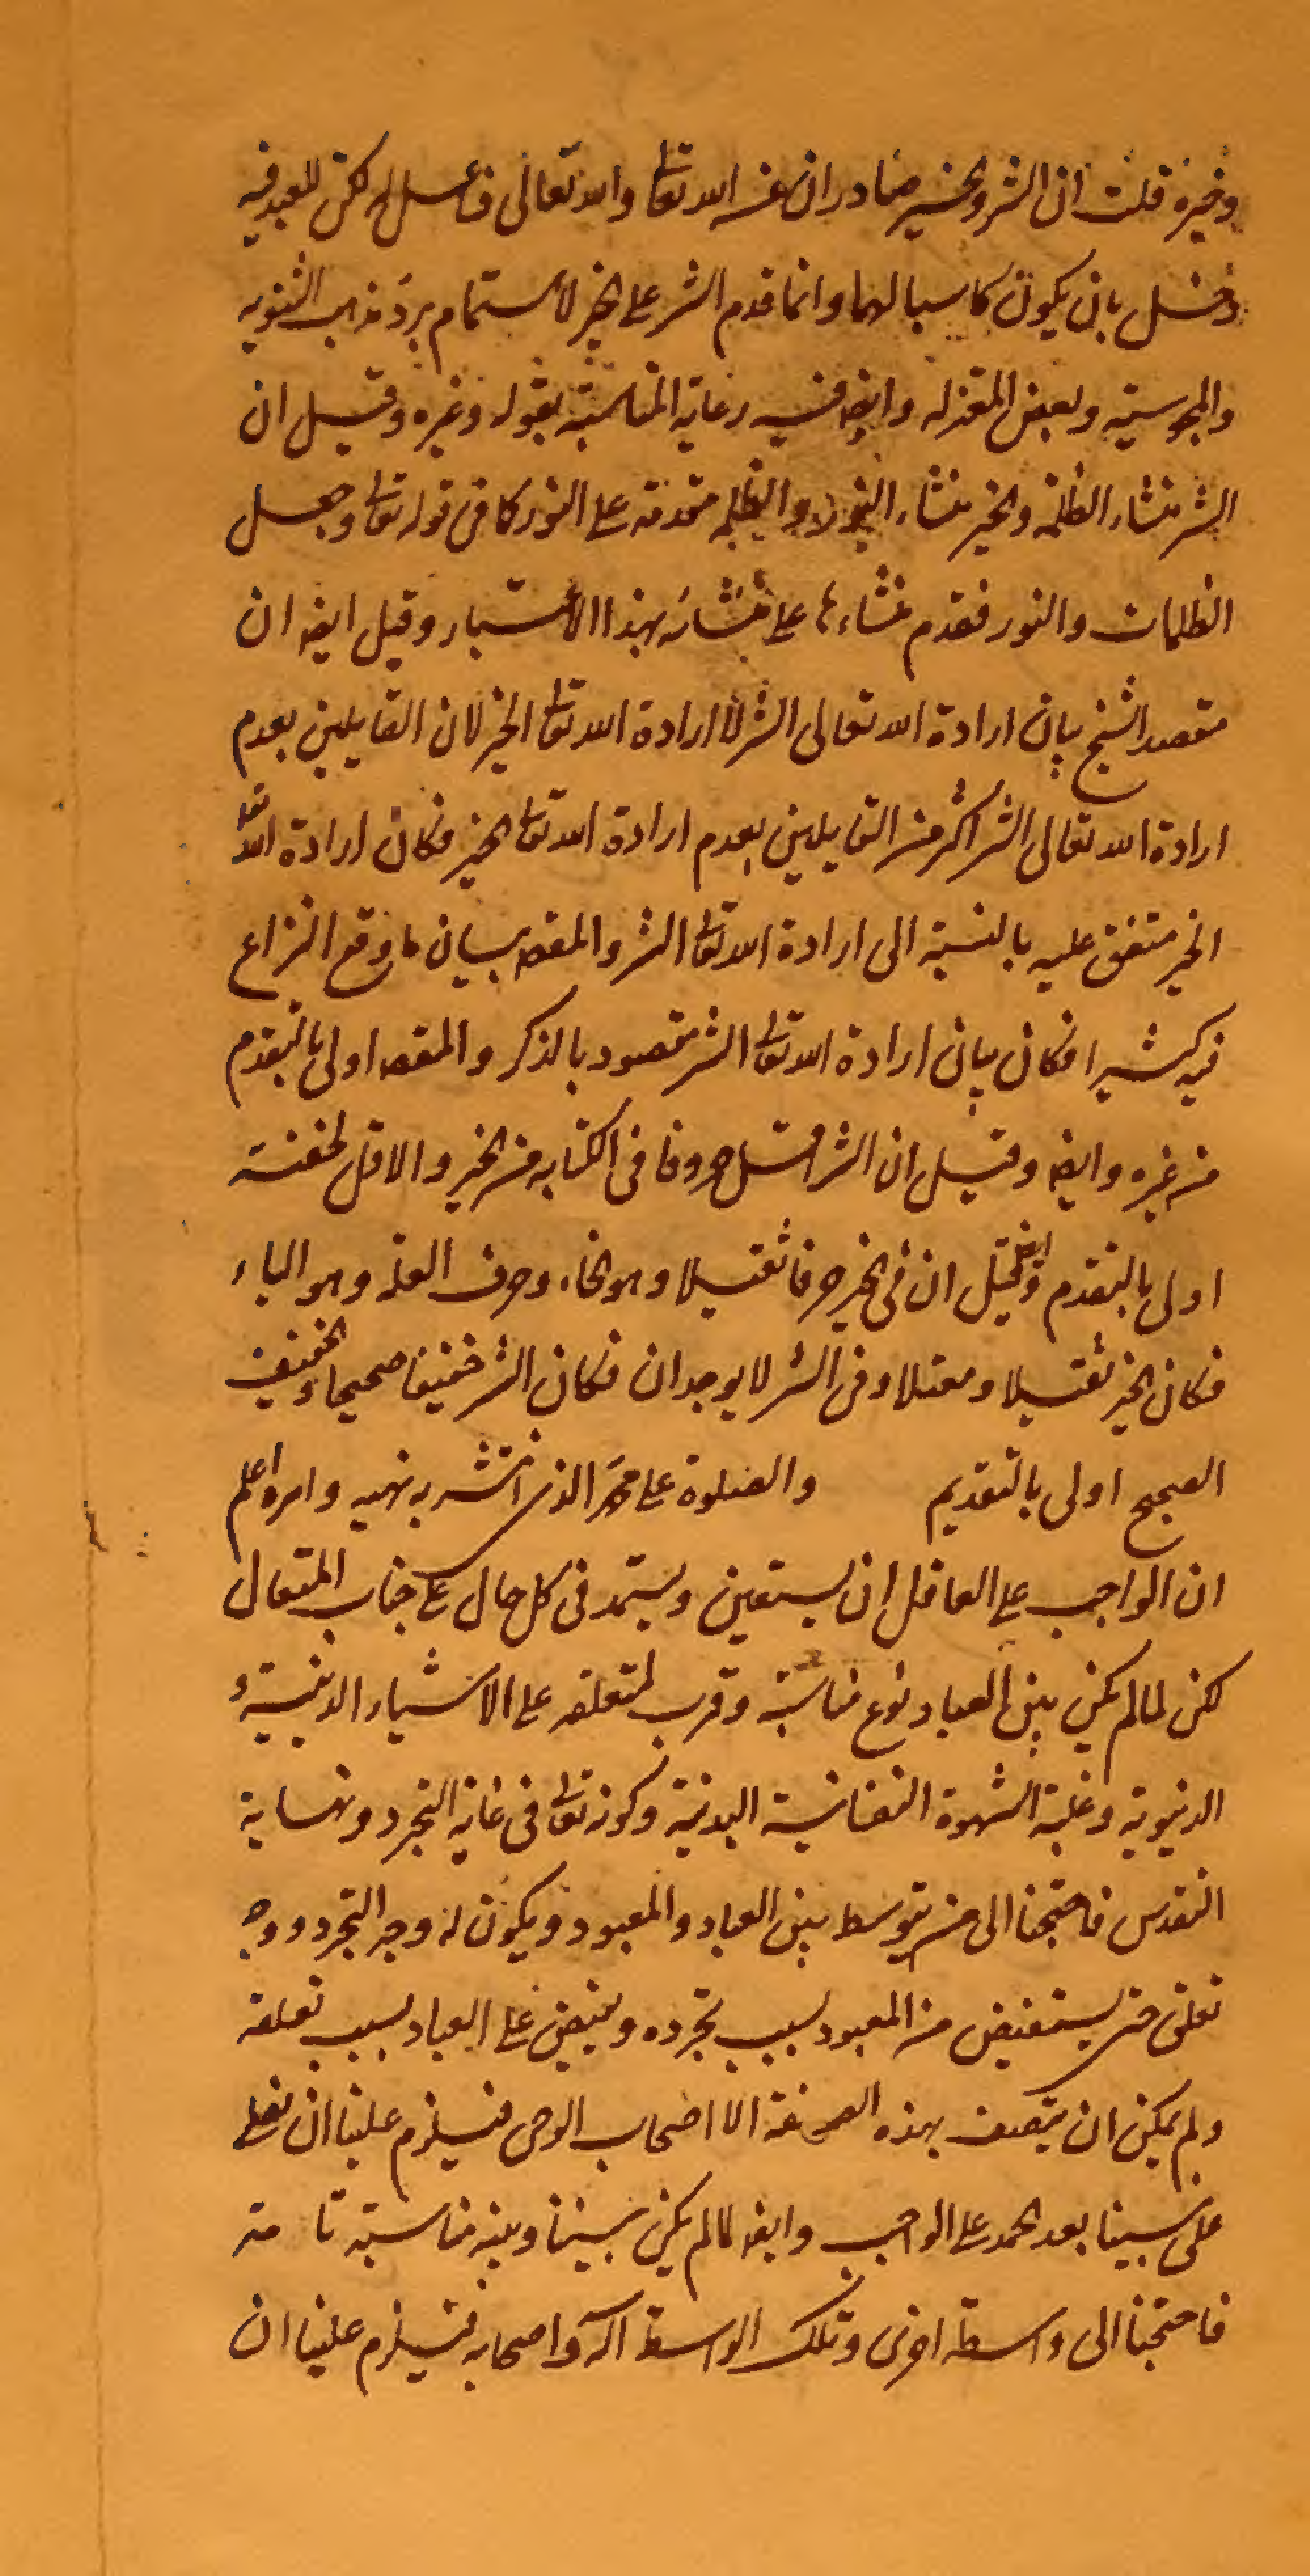 وخيره قلت ان الشر والخير صادران عن الله تعا والله تعالى فاعل له لكن للعبد فيه
دخل بان يكون كاسبا لهما وانما قدم الشر على الخير لاستمام برد مذهب الثنويه
والمجوسيته وبعض المعتزله وايضه فيه رعاية المناسبة بقوله وغيره وقيل ان
الشر منشاء الظلمة والخير منشاء النور والظلمه مقدمة على النور كما فى قوله تعا وجعل
الظلمات والنور فقدم منشاءها على منشائه بهذا الاعتبار وقيل ايضه ان
مقصد الشيخ بيان ارادة الله تعالى الشر لا ارادة الله تعا الخير لان القايلين بعدم
ارادة الله تعالى الشر اكثر من القايلين بعدم ارادة الله تعا الخير فكان ارادة الله تعا
الخير متفق عليه بالنسبة الى ارادة الله تعا الشر والمقصه بيان ما وقع النزاع
فيه كثيرا فكان بيان ارادة الله تعا الشر مقصود بالذكر والمقصه اولى بالتقدم
من غيره وايضه وقيل ان الشر اقل حروفا فى الكتابه من الخير والاقل لخفته
اولى بالتقدم وقيل ايضه ان فى الخير حرفا ثقيلا وهو الخاء وحرف العلة وهو الياء
فكان الخير ثقيلا ومعتلا وفى الشر لا يوجدان فكان الشر خفيفا صحيحا والخفيف
الصحيح اولى بالتقديم والصلوة على محمد الذى انتشر به نهيه وامره اعلم
ان الواجب على العاقل ان يستعين ويستمد فى كل حال على جناب المتعال
لكن لما لم يكن بين العباد نوع مناسبة وقرب لتعلقه على الاشياء الدنيية و
الدنيوية وغلبة الشهوة النفسانية البدنية وكونه تعا فى غاية التجرد ونهاية
التقدس فاحتجنا الى من يتوسط بين العباد والمعبود ويكون له وجه التجرد ووجه
تعلق حتى يستفيض من المعبود بسبب تجرده ويفيض على العباد بسبب تعلقه
ولم يكن ان يتصف بهذه الصفة الا اصحاب الوحى فيلزم علينا ان نصلى
على نبينا بعد الحمد على الواجب وايضه لما لم يكن بيننا وبينه مناسبة تامة
فاحتجنا الى واسطة اخرى وتلك الواسطة آله واصحابه فيلزم علينا ان